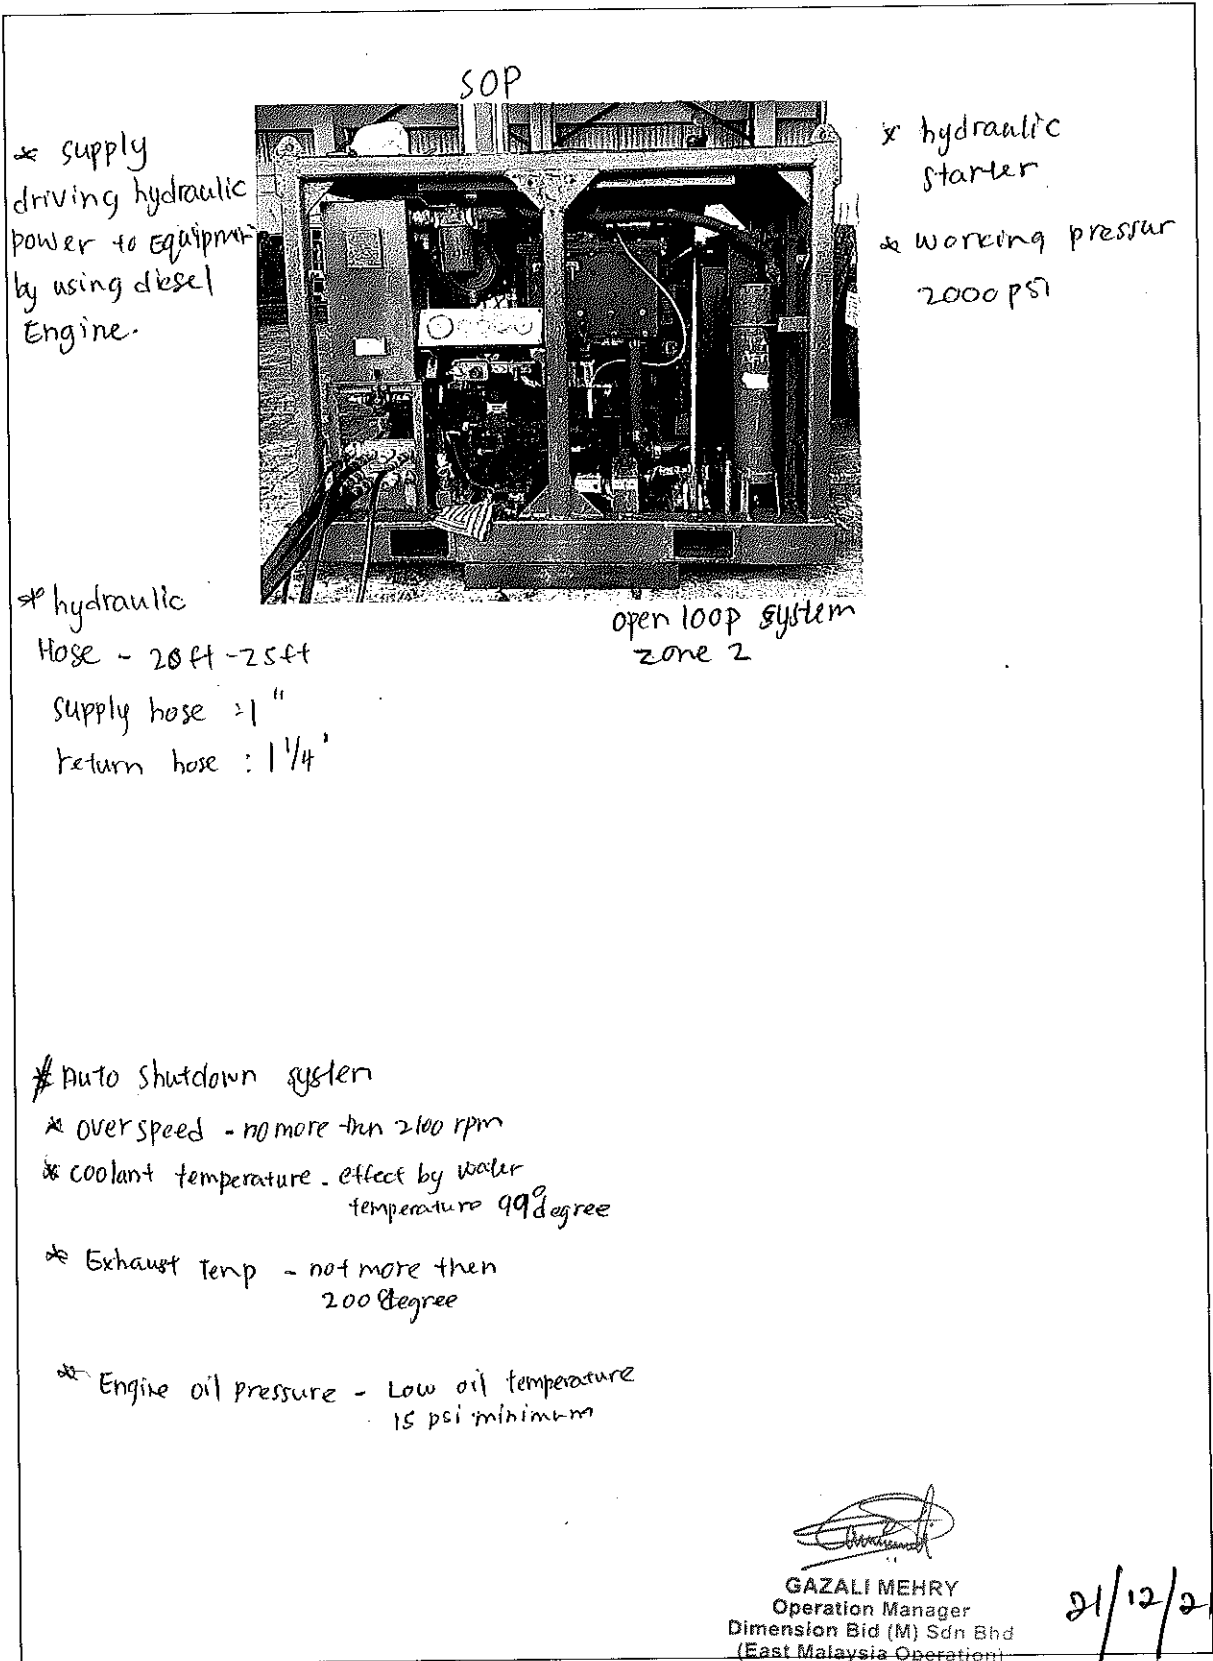 SOP
* supply
driving hydraulic
power to Equipmen
by using diesel
Engine.
* hydraulic
starter
* working pressur
2000 psi
* hydraulic
Hose - 20ft - 25ft
supply hose : 1"
return hose : 1 1/4'
open loop system
zone 2
# Auto shutdown system
* over speed - no more then 2100 rpm
* coolant temperature - effect by water
temperature 99° degree
* Exhaust Temp - not more then
200 degree
* Engine oil pressure - Low oil temperature
15 psi minimum
GAZALI MEHRY
Operation Manager
Dimension Bid (M) Sdn Bhd
(East Malaysia Operation)
21/12/21